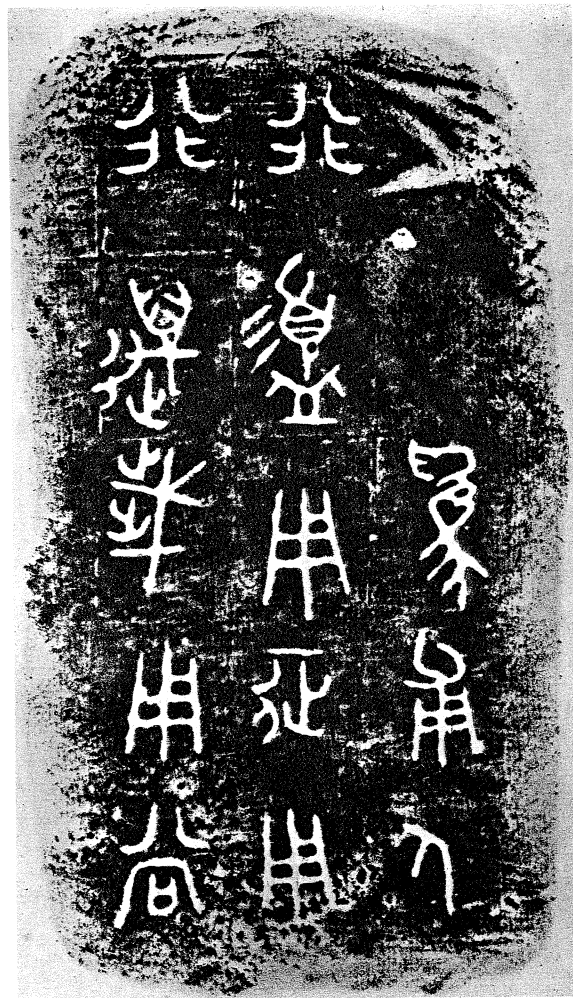 爲甫人
行盨用征用
行邁歲用尚